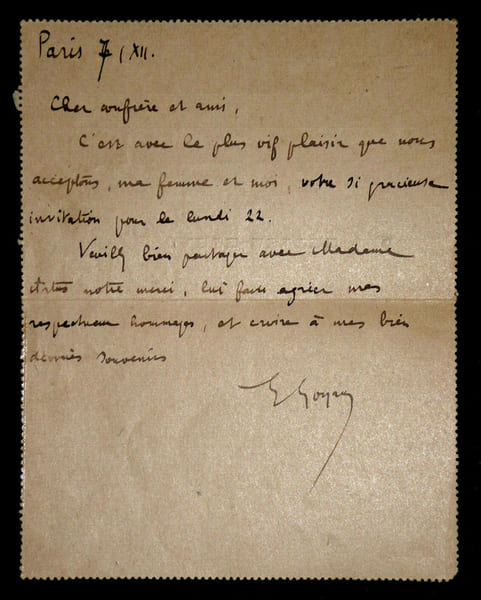 Paris 7 / XII.
Cher confrère et ami,
C'est avec le plus vif plaisir que nous
acceptons, ma femme et moi, votre si gracieuse
invitation pour le lundi 22.
Veuillez bien partager avec Madame
notre merci, lui faire agréer mes
respectueux hommages, et croire à mes bien
dévoués souvenirs